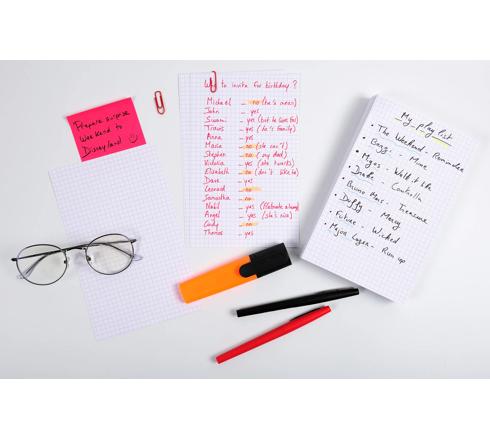 Prepare surprise
Weekend to
Disneyland
Who to invite for birthday ?
Michael - no (he's mean)
John - yes
- yes
Travis - yes (he's family)
Anna - yes
Maria - no (she can't)
Stephen - no (my dad)
Victoria - yes (she twerks)
Elisabeth - no (don't like her)
Dave - yes
Leonard - no
Samantha - no
Nabil - yes
Angel - yes (she's nice)
Cody - no
Thomas - yes
My play list
• The Weekend - Reminder
• - Mine
• - Walk it like
• - Controlla
• Bruno Mars - Treasure
• Duffy - Mercy
• Future - Wicked
• Major Lazer - Run up